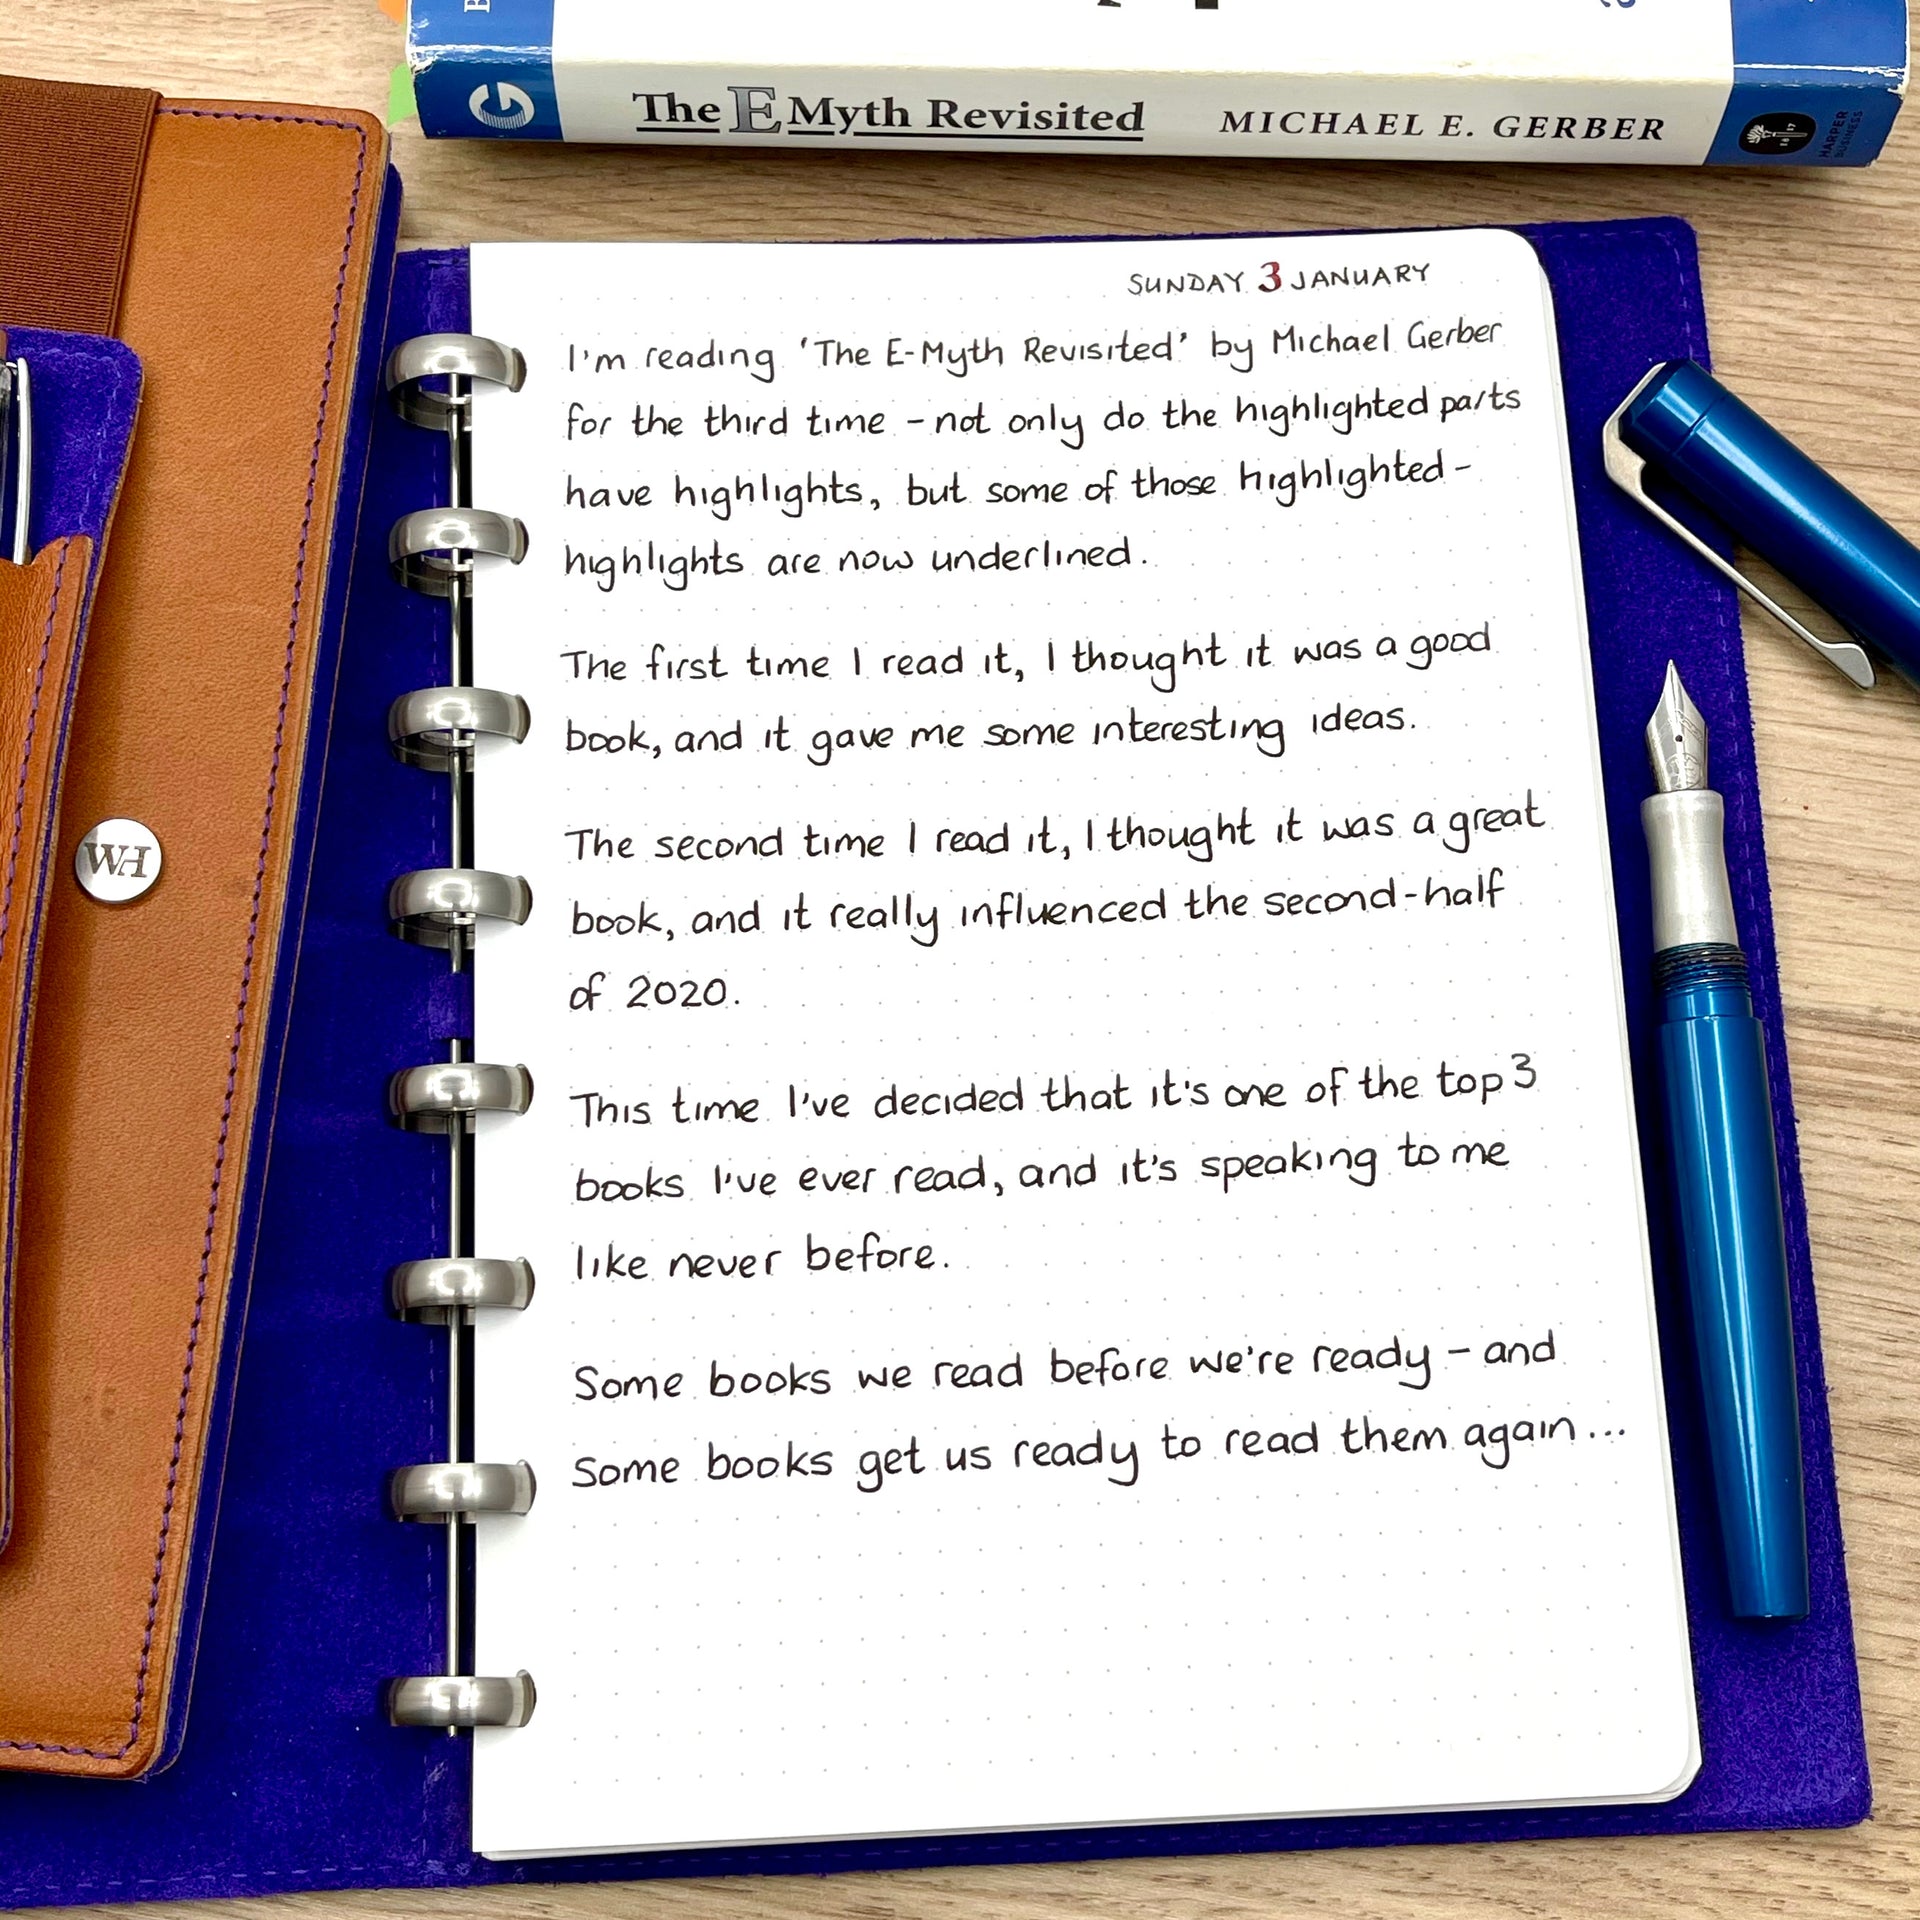 The E Myth Revisited MICHAEL E. GERBER
HARPER
BUSINESS
SUNDAY 3 JANUARY
I'm reading 'The E-Myth Revisited' by Michael Gerber
for the third time - not only do the highlighted parts
have highlights, but some of those highlighted-
highlights are now underlined.
The first time I read it, I thought it was a good
book, and it gave me some interesting ideas.
The second time I read it, I thought it was a great
book, and it really influenced the second-half
of 2020.
This time I've decided that it's one of the top 3
books I've ever read, and it's speaking to me
like never before.
Some books we read before we're ready - and
Some books get us ready to read them again...
WH